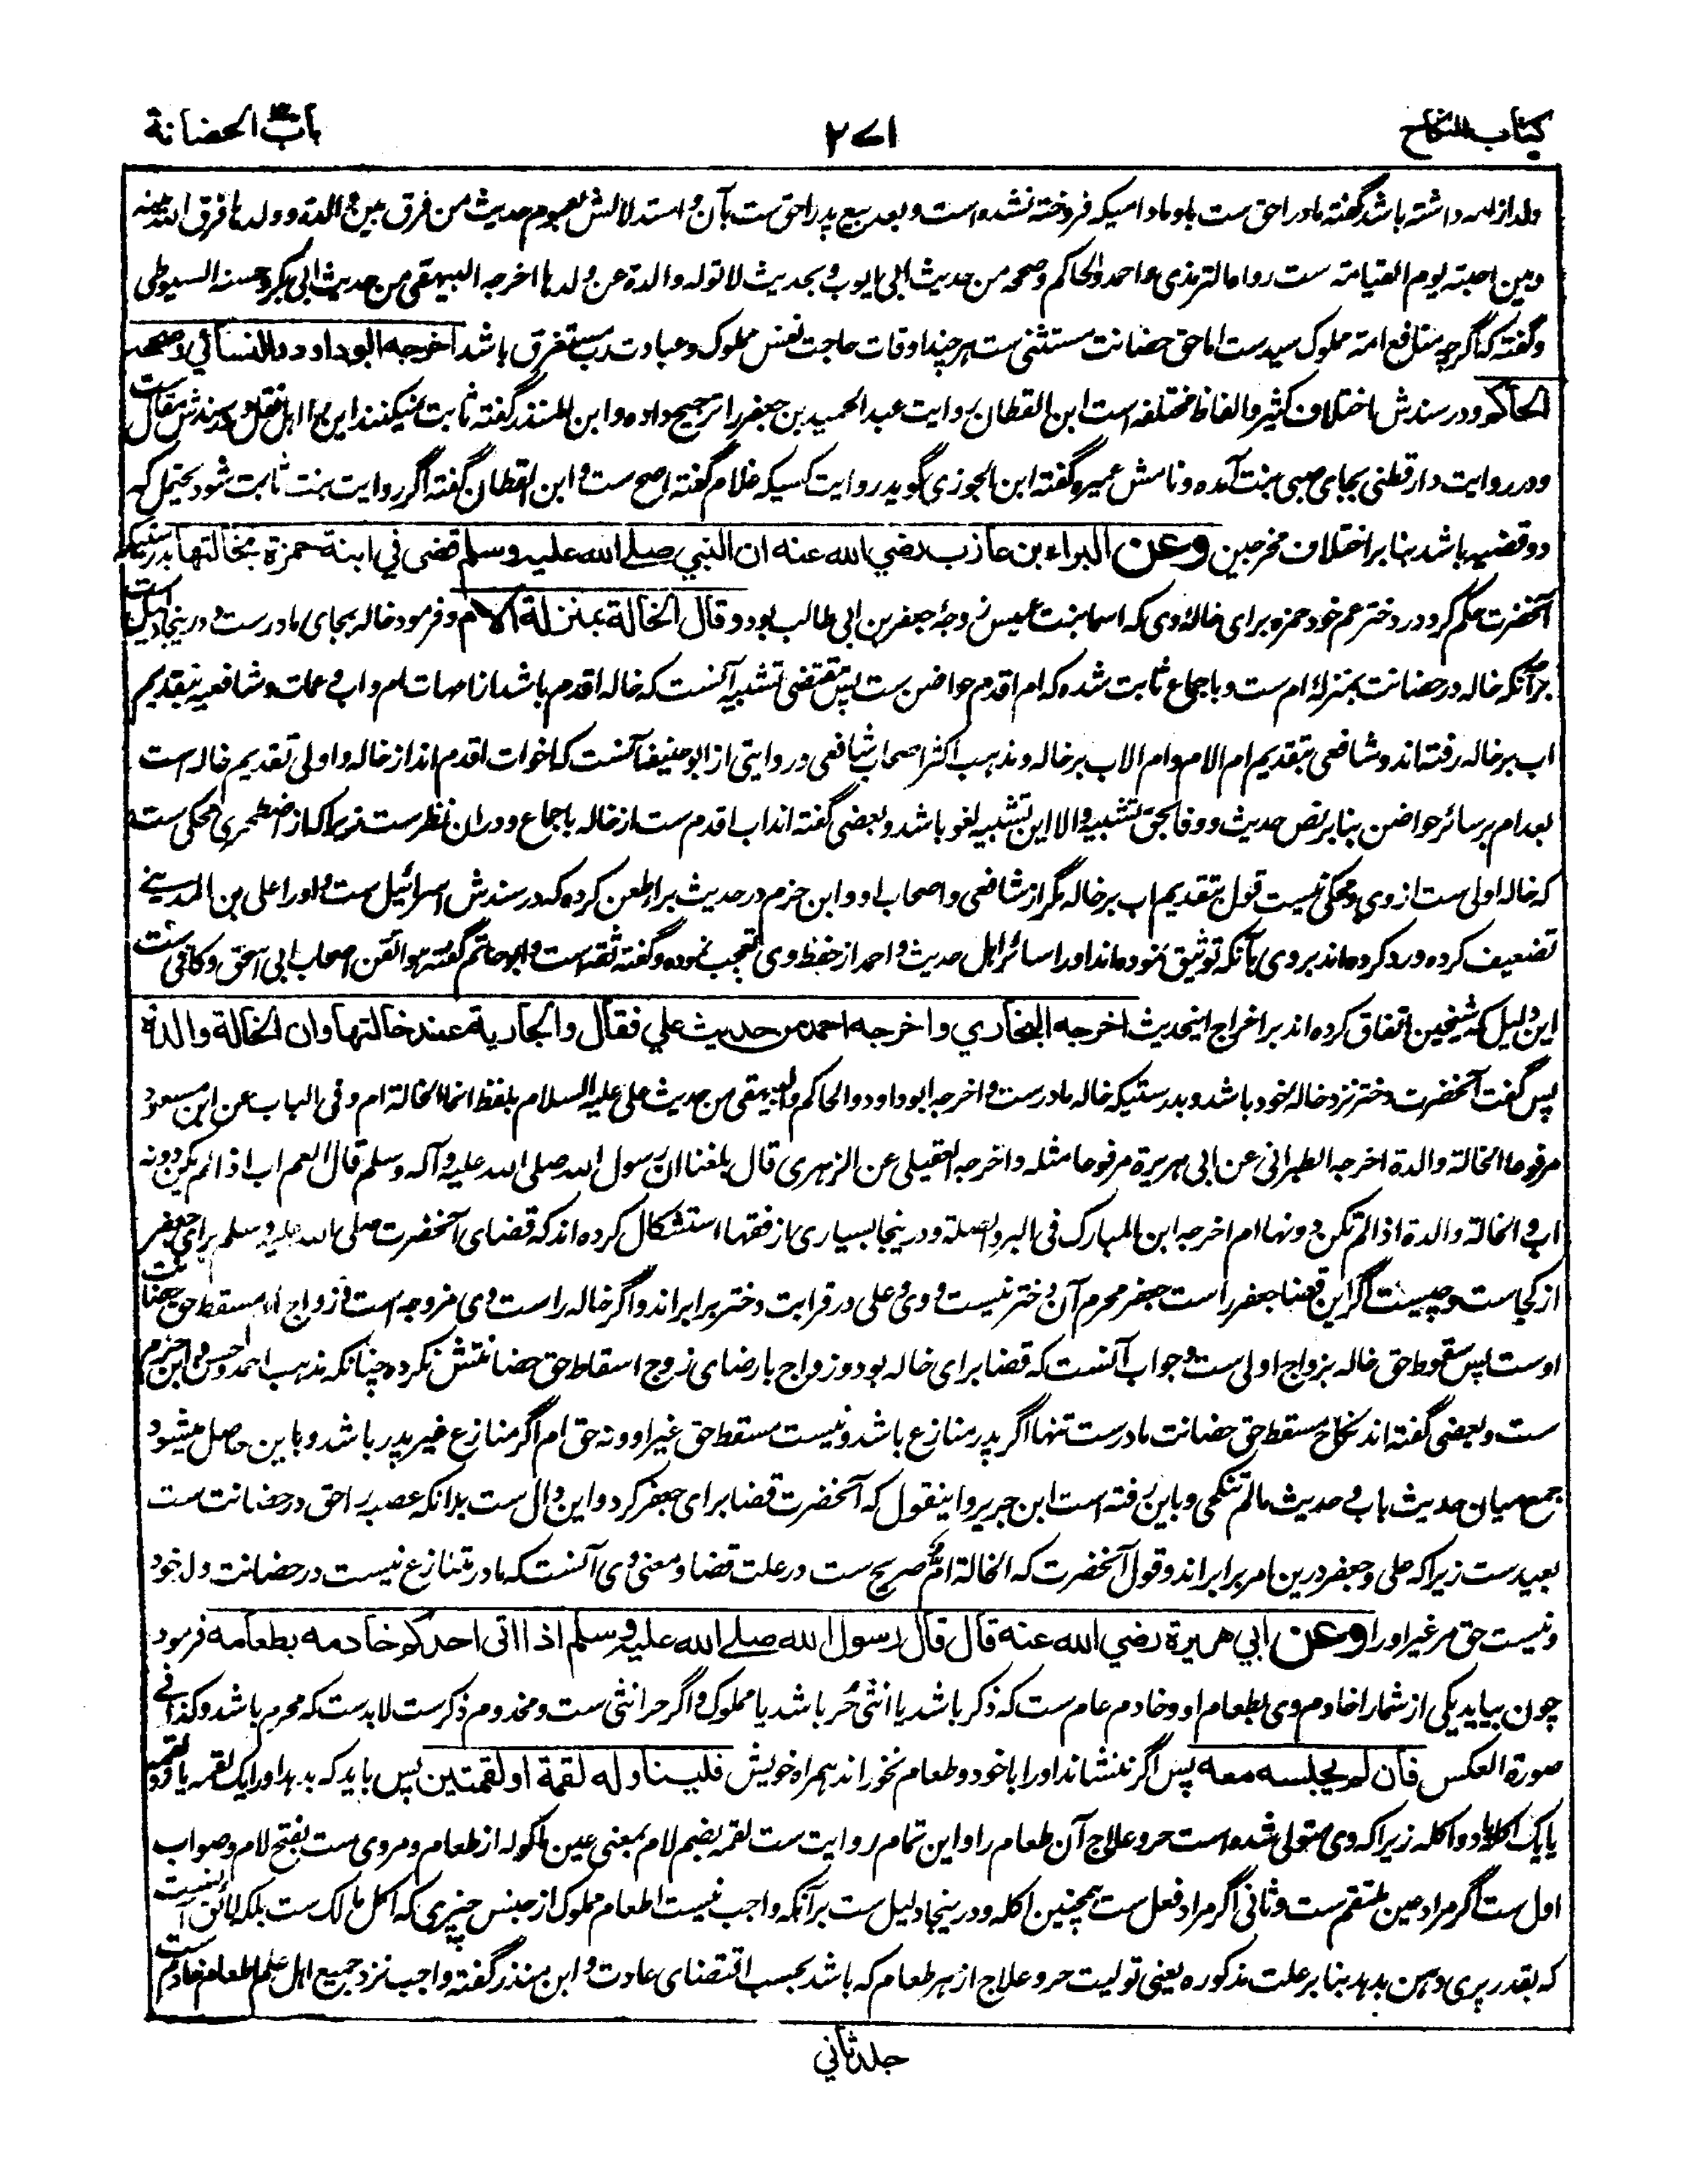 كتاب النكاح
٢٧١
باب الحضانة
ولد از امه داشته باشد گفته مادر احق ست باو مادامیکه فروخته نشده است و بعد بیع پدر احق ست بآن و استدلالش بعموم حدیث من فرق بین والدة و ولدها فرق الله بینه
و بین احبته یوم القیامة ست رواه الترمذی و احمد و الحاکم و صححه من حدیث ابی ایوب و بحدیث لا توله والدة عن ولدها اخرجه البیهقی من حدیث ابی بکر و حسنه السیوطی
و گفته که اگرچه منافع امه مملوک سید ست اما حق حضانت مستثنی ست هرچند اوقات حاجت نفس مملوک و عبادت رب مستغرق باشد اخرجه ابو داود والنسائي وصححه
الحاكم و در سندش اختلاف کثیر و الفاظ مختلفه است ابن القطان روایت عبد الحمید بن جعفر را ترجیح داده و ابن المنذر گفته ثابت نمیکنند این را اهل نقل و در سندش مقال ست
و در روایت دارقطنی بجای صبی بنت آمده و نامش عمیره گفته ابن الجوزی گوید روایت کسیکه غلام گفته اصح ست و ابن القطان گفته اگر روایت بنت ثابت شود یحتمل که
دو قضیه باشد بنابر اختلاف مخرجین وعن البراء بن عازب رضي الله عنه ان النبي صلے الله عليه وسلم قضى في ابنة حمزة بخالتها بدرستیکه
آنحضرت حکم کرد در دختر عم خود حمزه برای خالهٔ وی که اسما بنت عمیس زوجهٔ جعفر بن ابی طالب بود وقال الخالة بمنزلة الام و فرمود خاله بجای مادر ست و درینجا دلیل است
برآنکه خاله در حضانت بمنزلهٔ ام ست و باجماع ثابت شده که ام اقدم حواضن ست پس مقتضی تشبیه آنست که خاله اقدم باشد از امهات ام و اب و عمات و شافعیه بتقدیم
اب بر خاله رفته اند و شافعی بتقدیم ام الام و ام الاب بر خاله و مذهب اکثر اصحاب شافعی و روایتی از ابو حنیفه آنست که اخوات اقدم اند از خاله و اولی تقدیم خاله است
بعد ام بر سائر حواضن بنابر نص حدیث و وفا بحق تشبیه و الا این تشبیه لغو باشد و بعضی گفته اند اب اقدم ست از خاله باجماع و دران نظر ست زیرا که از اصطخری محکی ست
که خاله اولی ست از وی و محکی نیست قول بتقدیم اب بر خاله مگر از شافعی و اصحاب او و ابن حزم در حدیث برا طعن کرده که در سندش اسرائیل ست و او را علی بن المدینے
تضعیف کرده و رد کرده اند بر وی بآنکه توثیق نموده اند او را سائر اهل حدیث و احمد از حفظ وی تعجب نموده و گفته ثقه است و ابو حاتم گفته هو اتقن اصحاب ابی اسحق و کافی ست
این دلیل که شیخین اتفاق کرده اند بر اخراج اینحدیث اخرجه البخاري واخرجه احمد من حديث علي فقال والجارية عند خالتها وان الخالة والدة
پس گفت آنحضرت دختر نزد خاله خود باشد و بدرستیکه خاله مادر ست و اخرجه ابو داود و الحاکم و البیهقی من حدیث علی علیه السلام بلفظ انما الخالة ام و فی الباب عن ابن مسعود
مرفوعا الخالة والدة اخرجه الطبرانی عن ابی هریرة مرفوعا مثله و اخرجه العقیلی عن الزهری قال بلغنا ان رسول الله صلی الله علیه و آله و سلم قال العم اب اذا لم یکن دونه
اب و الخالة والدة اذا لم تکن دونها ام اخرجه ابن المبارک فی البر و الصلة و درینجا بسیاری از فقها استشکال کرده اند که قضای آنحضرت صلی الله علیه و سلم برای جعفر
از کجاست و چیست اگر این قضا جعفر راست جعفر محرم آن دختر نیست و وی و علی در قرابت دختر برابر اند و اگر خاله راست وی مزوجه است و زواج ام مسقط حق حضانت
اوست پس سقوط حق خاله بزواج اولی ست و جواب آنست که قضا برای خاله بود و زواج با رضای زوج اسقاط حق حضانتش نکرده چنانکه مذهب احمد و حسن و ابن حزم
ست و بعضی گفته اند نکاح مسقط حق حضانت مادر ست تنها اگر پدر منازع باشد و نیست مسقط حق غیر او و نه حق ام اگر منازع غیر پدر باشد و باین حاصل میشود
جمع میان حدیث باب و حدیث مالم تنکحی و باین رفته است ابن جریر و اینقول که آنحضرت قضا برای جعفر کرد و این دال ست برانکه عصبه را حق در حضانت ست
بعید ست زیرا که علی و جعفر درین امر برابر اند و قول آنحضرت که الخالة ام صریح ست در علت قضا و معنی وی آنست که مادر متنازع نیست در حضانت ولد خود
و نیست حق مر غیر او را وعن ابي هريرة رضي الله عنه قال قال رسول الله صلے الله عليه وسلم اذا اتى احدكم خادمه بطعامه فرمود
چون بیاید یکی از شمارا خادم وی بطعام او و خادم عام ست که ذکر باشد یا انثی حر باشد یا مملوک و اگر حر انثی ست و مخدوم ذکر ست لابد ست که محرم باشد و کذا فے
صورة العکس فان لم يجلسه معه پس اگر ننشاند او را با خود و طعام نخوراند همراه خویش فليناوله لقمة او لقمتين پس باید که بدهد او را یک لقمه یا دو لقمه
یا یک اکله یا دو اکله زیرا که وی متولی شده است حر و علاج آن طعام را و این تمام روایت ست لقمه بضم لام بمعنی عین ماکوله از طعام و مروی ست بفتح لام و صواب
اول ست اگر مراد عین ملتقم ست و ثانی اگر مراد فعل ست همچنین اکله و درینجا دلیل ست برآنکه واجب نیست اطعام مملوک از جنس چیزی که اکل مالک ست بلکه لائق آنست
که بقدر پری دهن بدهد بنابر علت مذکوره یعنی تولیت حر و علاج از هر طعام که باشد بحسب اقتضای عادت و ابن منذر گفته واجب نزد جمیع اهل علم اطعام خادم ست
جلد ثاني